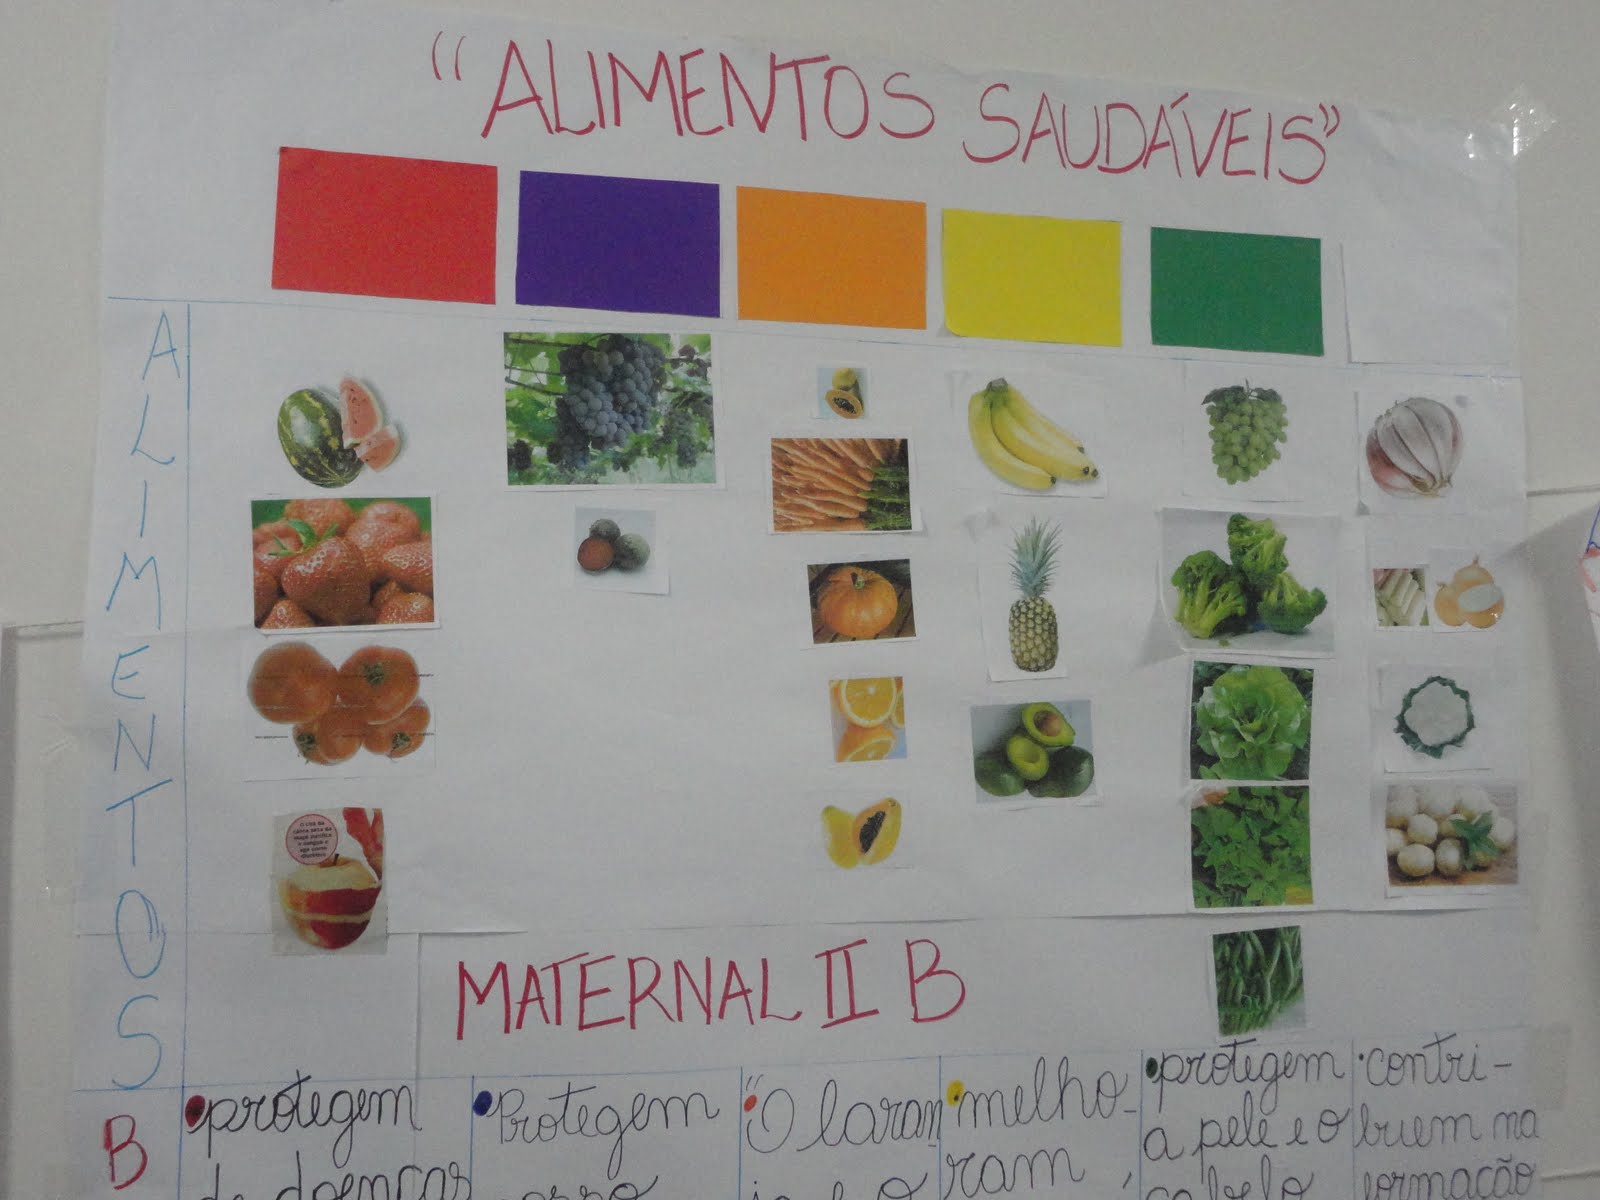 “ALIMENTOS SAUDÁVEIS”
ALIMENTOS
MATERNAL II B
B
protegem
de doenças
Protegem
"O laran
melho-
ram
protegem
a pele e o
cabelo
contri-
buem na
formação